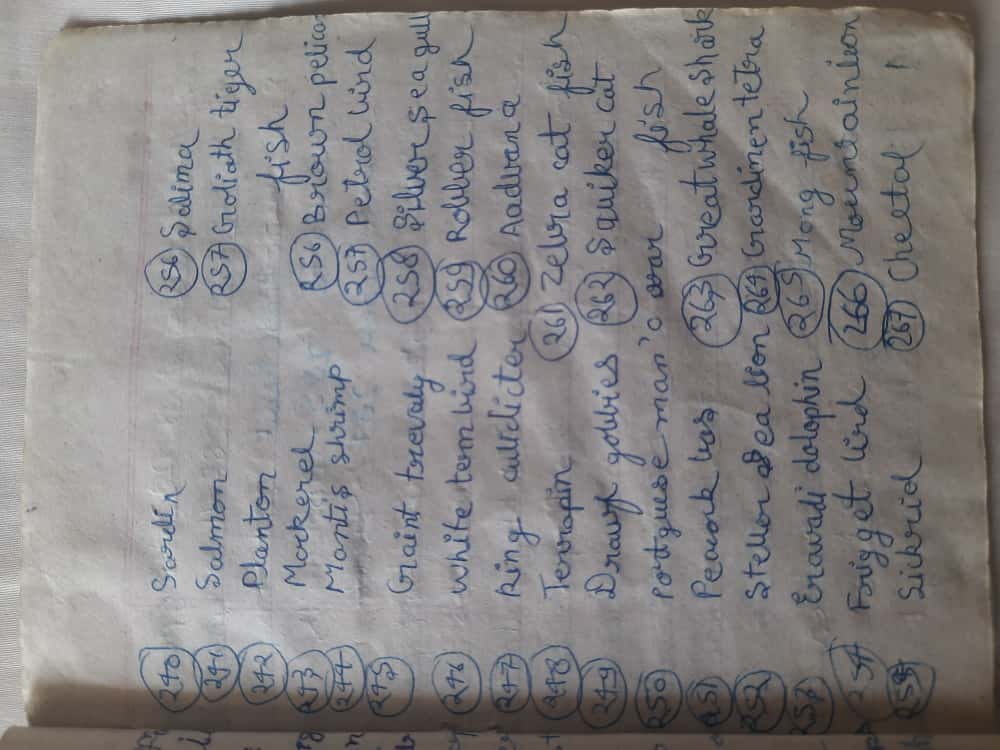 240 Sardin
241 Salmon
242 Planton
243 Mackerel
244 Mantis shrimp
245 Graint trevely
246 White tern bird
247 Ring
248 Terrapin
249 Drawf gobies
250 Portguse man'o war fish
251 Peacock bas
252 Stellor Sea lion
253 Eravadi dolophin
254 Frigget bird
255
256 Salima
257 Groliath tiger
fish
256 Brown pelican
257 Petrol bird
258 Silver sea gull
259 Robber fish
260 Aadvana
261 Zebra cat fish
262 Squiker cat
263 Great whale shark
264 tetra
265 Mong fish
266 Mounsain lion
267 Cheetal